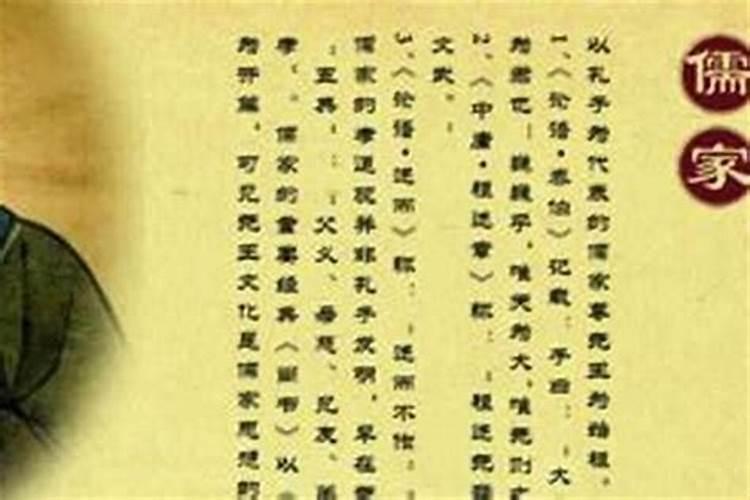 儒家
以孔子为代表的儒家尊尧王为始祖。
1、《论语·泰伯》记载:子曰:“大
为君也!巍巍乎,唯天为大,唯尧则
2、《中庸·祖述章》称:“祖述尧
文武。”
3、《论语·述而》称:“述而不作
儒家的孝道观并非孔子发明,早在
“五典”:“父义、母慈、兄友、
孝”。儒家的重要经典《尚书》以
为开篇。可见尧王文化是儒家思想的